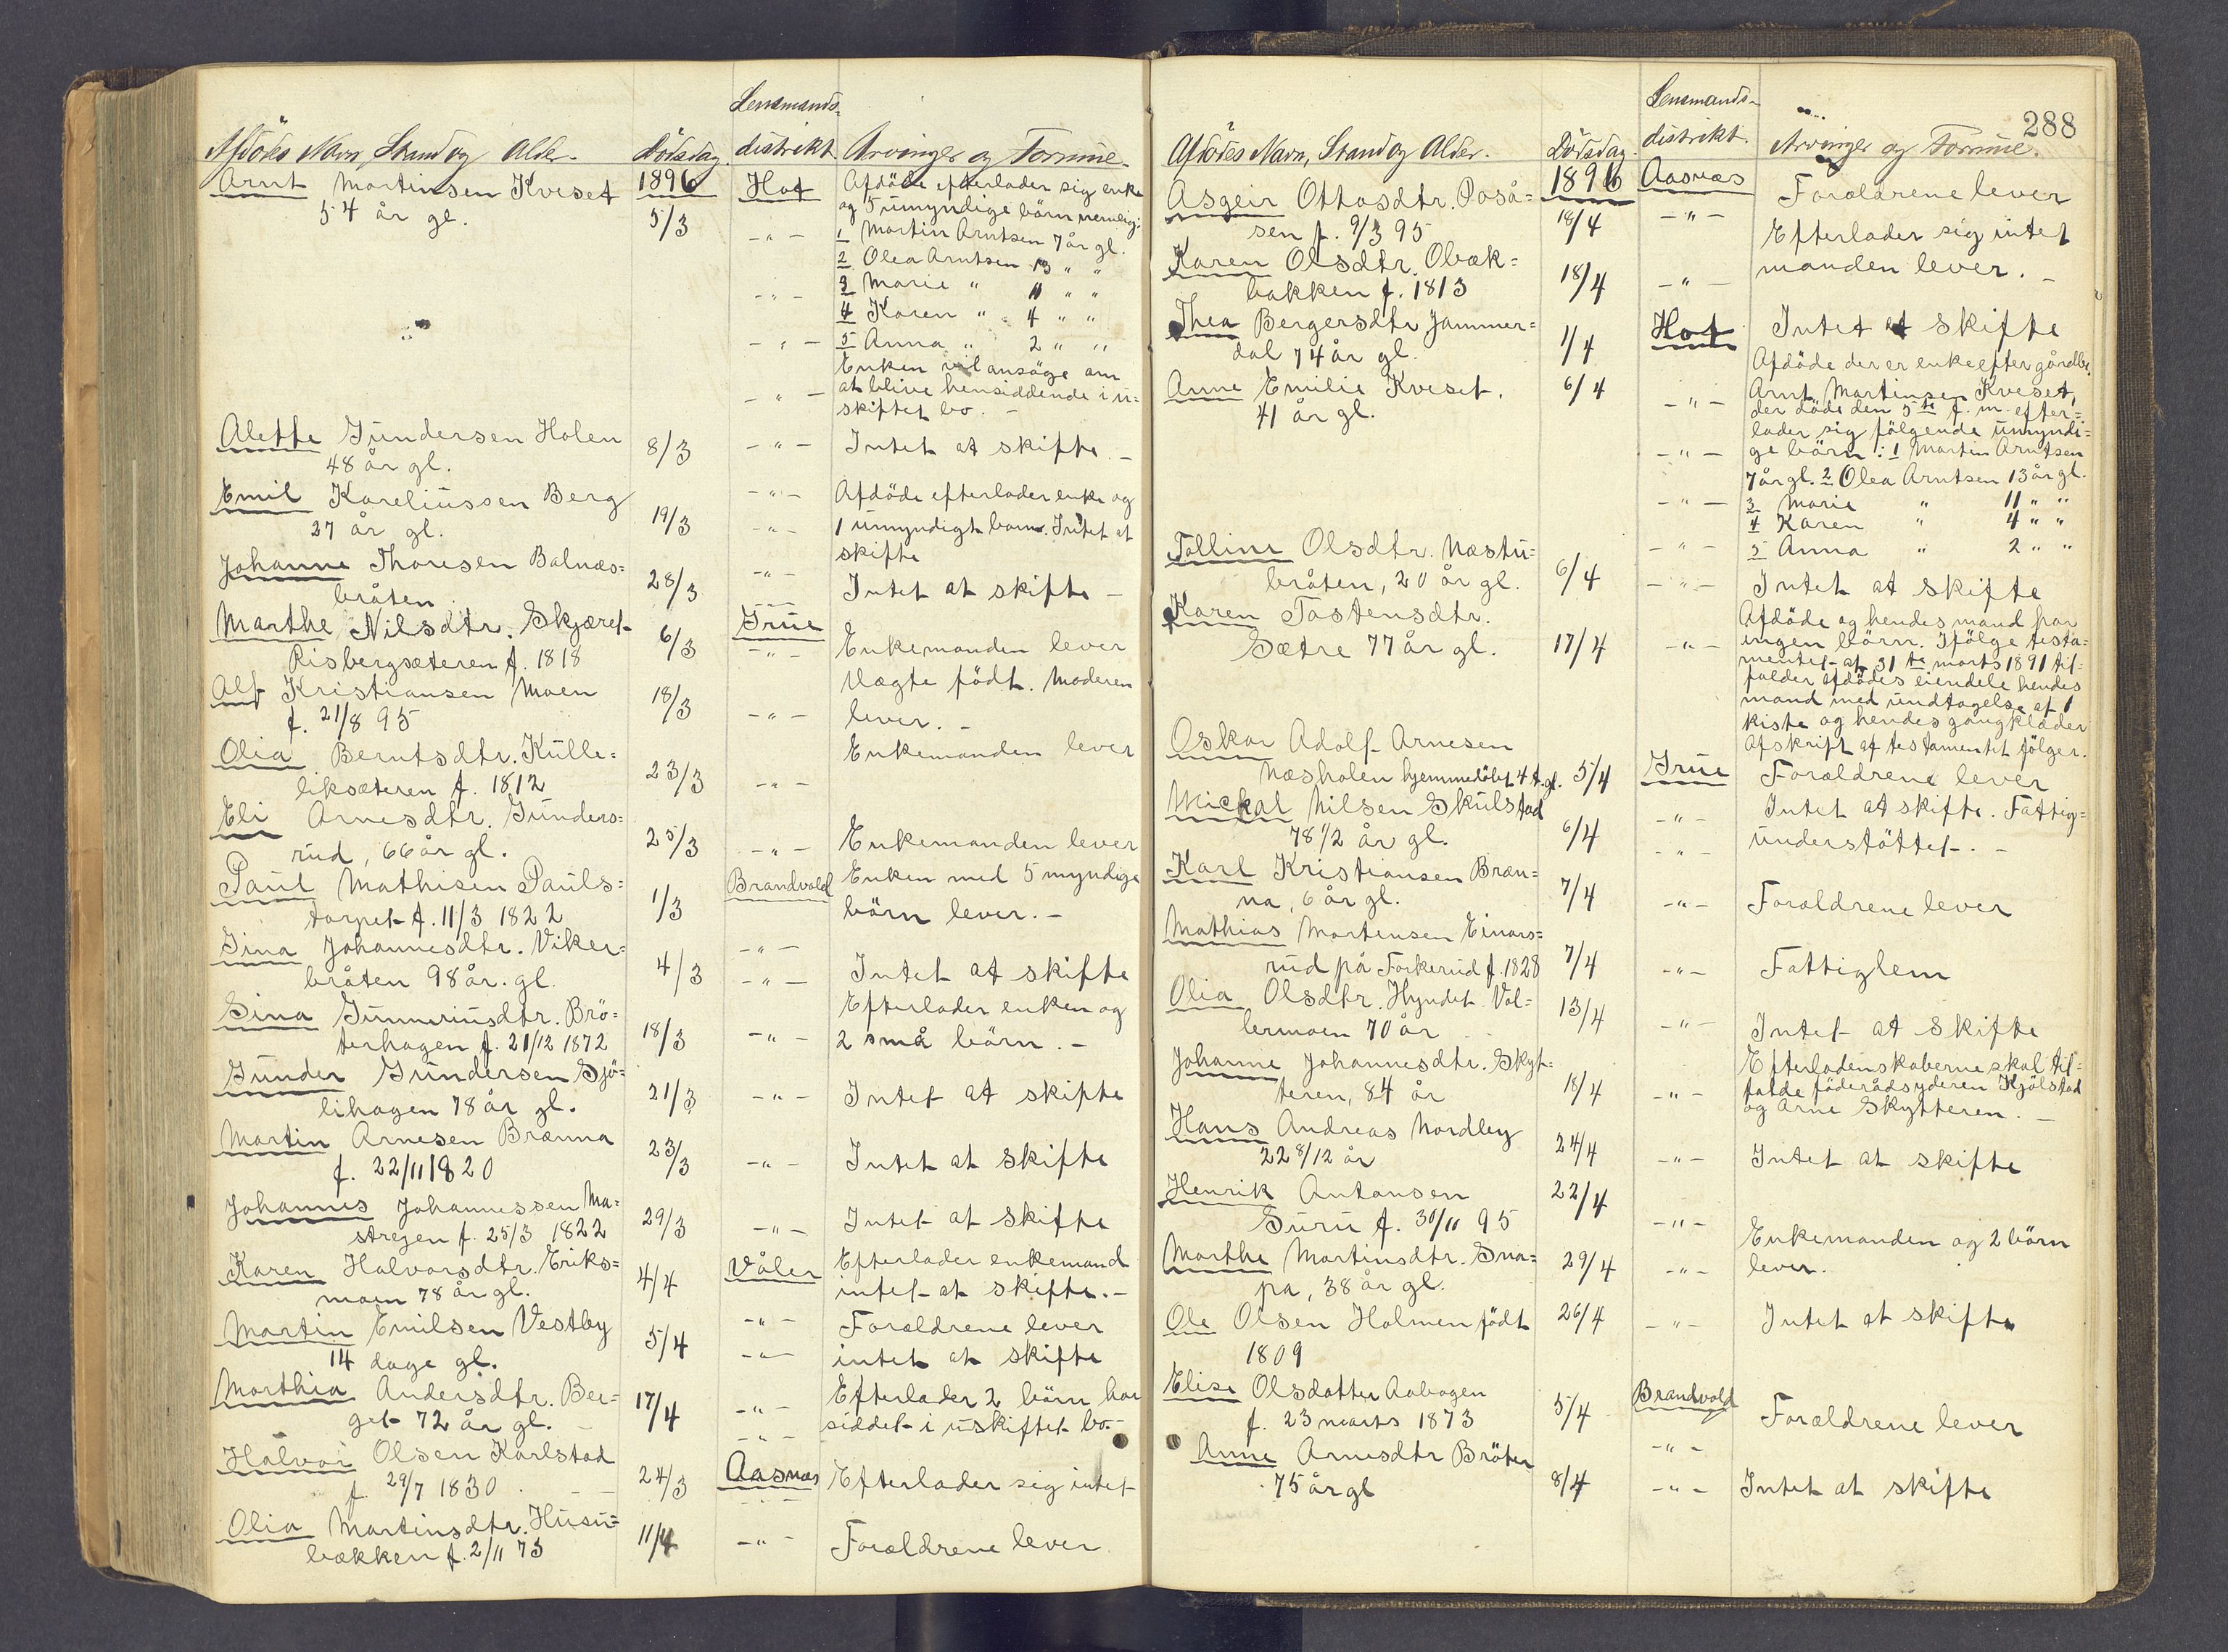 Lensmands-
Afdödes Navn, Stand og Alder. Dödsdag. distrikt. Arvinger og Formue.
Arnt Martinsen Kveset 1896 Hof Afdöde efterlader sig enke
54 år gl. 5/3 og 5 umyndige börn nemlig:
-"- 1 Martin Arntsen 7 år gl.
2 Olea Arntsen 13 " "
-"- 3 Marie " 11 " "
4 Karen " 4 " "
-"- 5 Anna " 2 " "
Enken vil ansöge om
at blive hensiddende i u=
-"- skiftet bo. -
Alette Gundersen Holen 8/3 -"- Intet at skifte. -
48 år gl.
Emil Kareliussen Berg -"- Afdöde efterlader enke og
27 år gl. 19/3 -"- 1 umyndigt barn. Intet at
skifte
Johanne Thoresen Balnæs= 28/3 -"- Intet at skifte -
bråten
Marthe Nilsdtr. Skjæret 6/3 Grue Enkemanden lever
Risbergsæteren f. 1818 -"-
Alf Kristiansen Moen 18/3 Uægte födt. Moderen
f. 21/8 95 -"- lever. -
Olia Berntsdtr. Kulle= 23/3 Enkemanden lever
liksæteren f. 1812 -"-
Eli Arnesdtr. Gunders=
rud, 66 år gl. 25/3 -"- Enkemanden lever
Paul Mathisen Pauls= 1/3 Brandvold Enken med 5 myndige
torpet f. 11/3 1822 börn lever. -
Gina Johannesdtr. Viker= 4/3 -"-
bråten 98 år. gl. -"- Intet at skifte
Sina Gunneriusdtr. Brö= Efterlader enken og
terhagen f. 21/12 1872 18/3 -"- 2 små börn. -
Gunder Gundersen Sjö= 21/3 -"- Intet at skifte
lihagen 78 år gl.
Martin Arnesen Brænna 23/3 -"- Intet at skifte
f. 22/11 1820
Johannes Johannessen Ma= 29/3 -"- Intet at skifte
strejen f. 25/3 1822
Karen Halvorsdtr. Eriks= 4/4 Våler Efterlader enkemand
moen 78 år gl. intet at skifte. -
Martin Emilsen Vestby 5/4 -"- Forældrene lever
14 dage gl. -"- intet at skifte
Marthia Andersdtr. Ber= 17/4 Efterlader 2 börn har
get 72 år gl. - -"- siddet i uskiftet bo. -
-"-
Halvor Olsen Karlstad 24/3 Aasnæs Efterlader sig intet
f. 29/7 1830
Olia Martinsdtr. Husu= 11/4 -"- Forældrene lever
bækken f. 2/11 73
Lensmands-
288
Afdödes Navn, Stand og Alder. Dödsdag. distrikt. Arvinger og Formue.
Asgeir Ottosdtr. Poså= 1896 Aasnæs Forældrene lever
sen f. 9/3 95 18/4 -"- Efterlader sig intet
Karen Olsdtr. Obæk= 18/4 -"- manden lever. -
bakken f. 1813
Thea Bergersdtr Jammer= 1/4 Hof Intet at skifte
dal 74 år gl. Afdöde der er enke efter gårdbr.
Anne Emilie Kveset. 6/4 -"- Arnt Martinsen Kveset,
41 år gl. der döde den 5te f. m. efter=
lader sig fölgende umyndi=
-"- ge börn: 1 Martin Arntsen
7 år gl. 2 Olea Arntsen 13 år gl.
-"- 3 Marie " 11 " "
4 Karen " 4 " "
-"- 5 Anna " 2 " "
Tolline Olsdtr. Næstu=
bråten, 20 år gl. 6/4 -"- Intet at skifte
Karen Tostensdtr. Afdöde og hendes mand har
Sætre 77 år gl. 17/4 -"- ingen börn. Ifölge testa=
mentet af 31te marts 1891 til=
falder afdödes eiendele hendes
mand med undtagelse af 1
kiste og hendes gangklæder
Afskrift af testamentet fölger.
Oskar Adolf Arnesen
Næsholen hjemmedöbt 4 t. gl. 5/4 Grue Forældrene lever
Mickal Nilsen Skulstad -"- Intet at skifte. Fattig=
78 1/2 år gl. 6/4 -"- understöttet. -
Karl Kristiansen Bræn= 7/4 -"- Forældrene lever
na, 6 år gl.
Mathias Mortensen Einars=
rud på Forkerud f. 1828 7/4 -"- Fattiglem
Olia Olsdtr. Hyndet. Vol= 13/4 -"- Intet at skifte
lermoen 70 år
Johanne Johannesdtr. Skyt= Efterladenskaberne skal til=
teren, 84 år 18/4 -"- falde föderådsyderen Kjölstad
og Arne Skytteren. -
Hans Andreas Nordby 24/4 -"- Intet at skifte
22 8/12 år
Henrik Antonsen 22/4
Suru f. 30/11 95 -"- Enkemanden og 2 börn
Marthe Martinsdtr. Sna= 29/4 -"- lever.
pa, 38 år gl.
Ole Olsen Holmen födt 26/4 -"- Intet at skifte
1809
Elise Olsdatter Aabogen 5/4 Brandvold Forældrene lever
f. 23 marts 1873 -"-
Anne Arnesdtr Bröter
75 år gl 8/4 -"- Intet at skifte